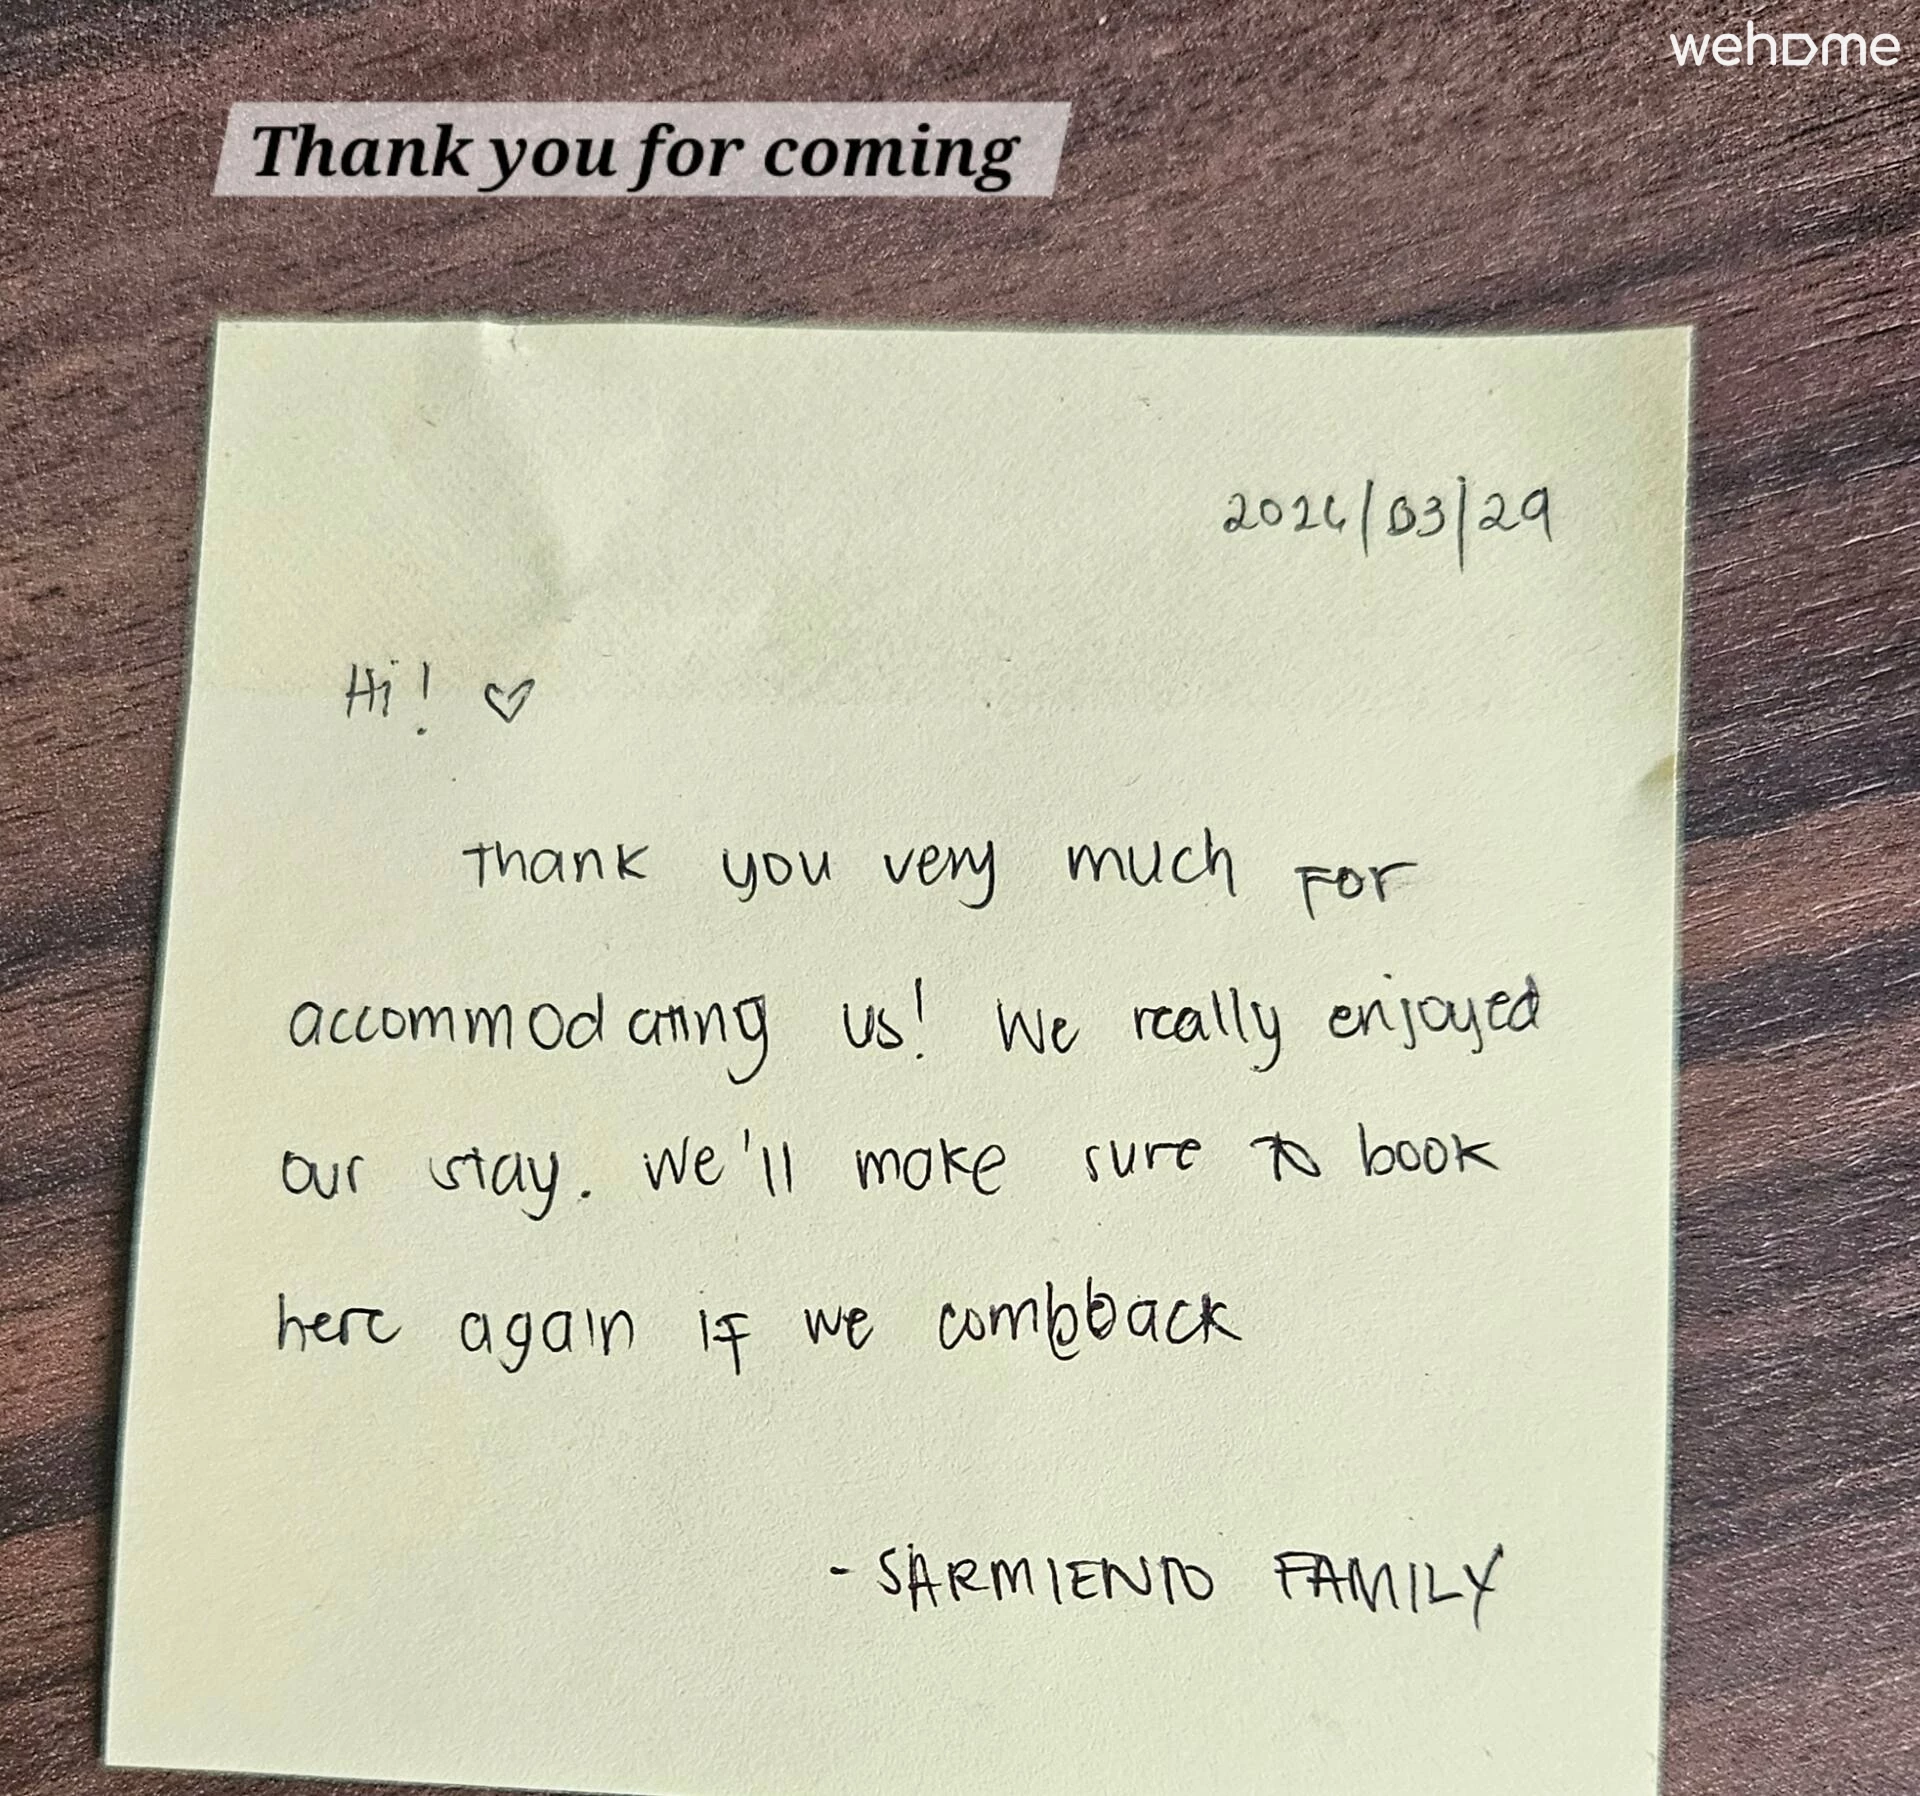 wehome
Thank you for coming
2026/03/29
Hi! ♡
Thank you very much for
accommodating us! We really enjoyed
our stay. We'll make sure to book
here again if we combback
- SARMIENTO FAMILY